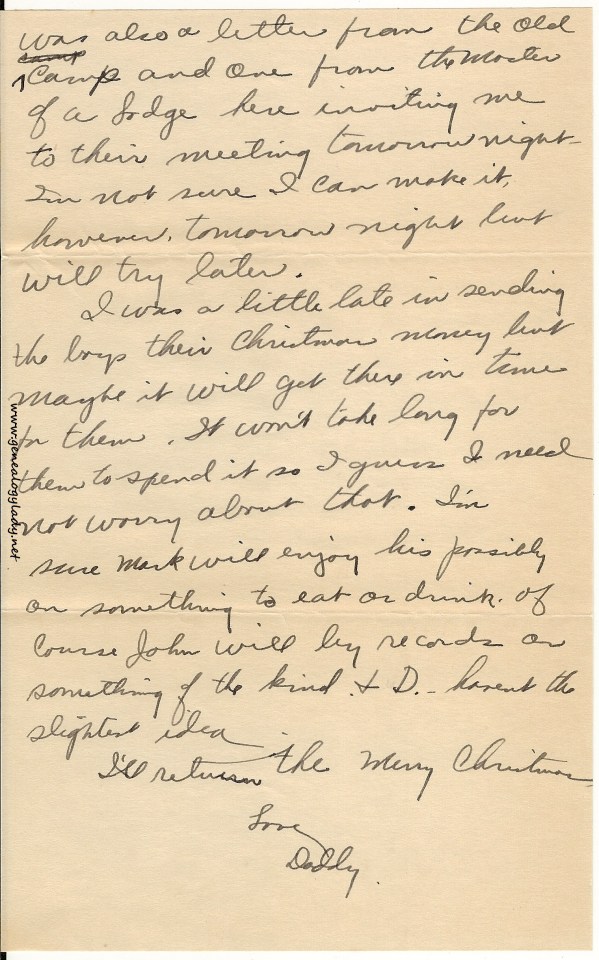 was also a letter from the Old
camp
Camp and one from the Master
of a Lodge here inviting me
to their meeting tomorrow night-
I'm not sure I can make it,
however, tomorrow night but
will try later.
I was a little late in sending
the boys their Christmas money but
maybe it will get there in time
for them. It won't take long for
them to spend it so I guess I need
not worry about that. I'm
sure Mark will enjoy his possibly
on something to eat or drink. Of
course John will by records or
something of the kind. & D. - havent the
slightest idea
I'll return the Merry Christmas
Love
Daddy.
www.genealogylady.net